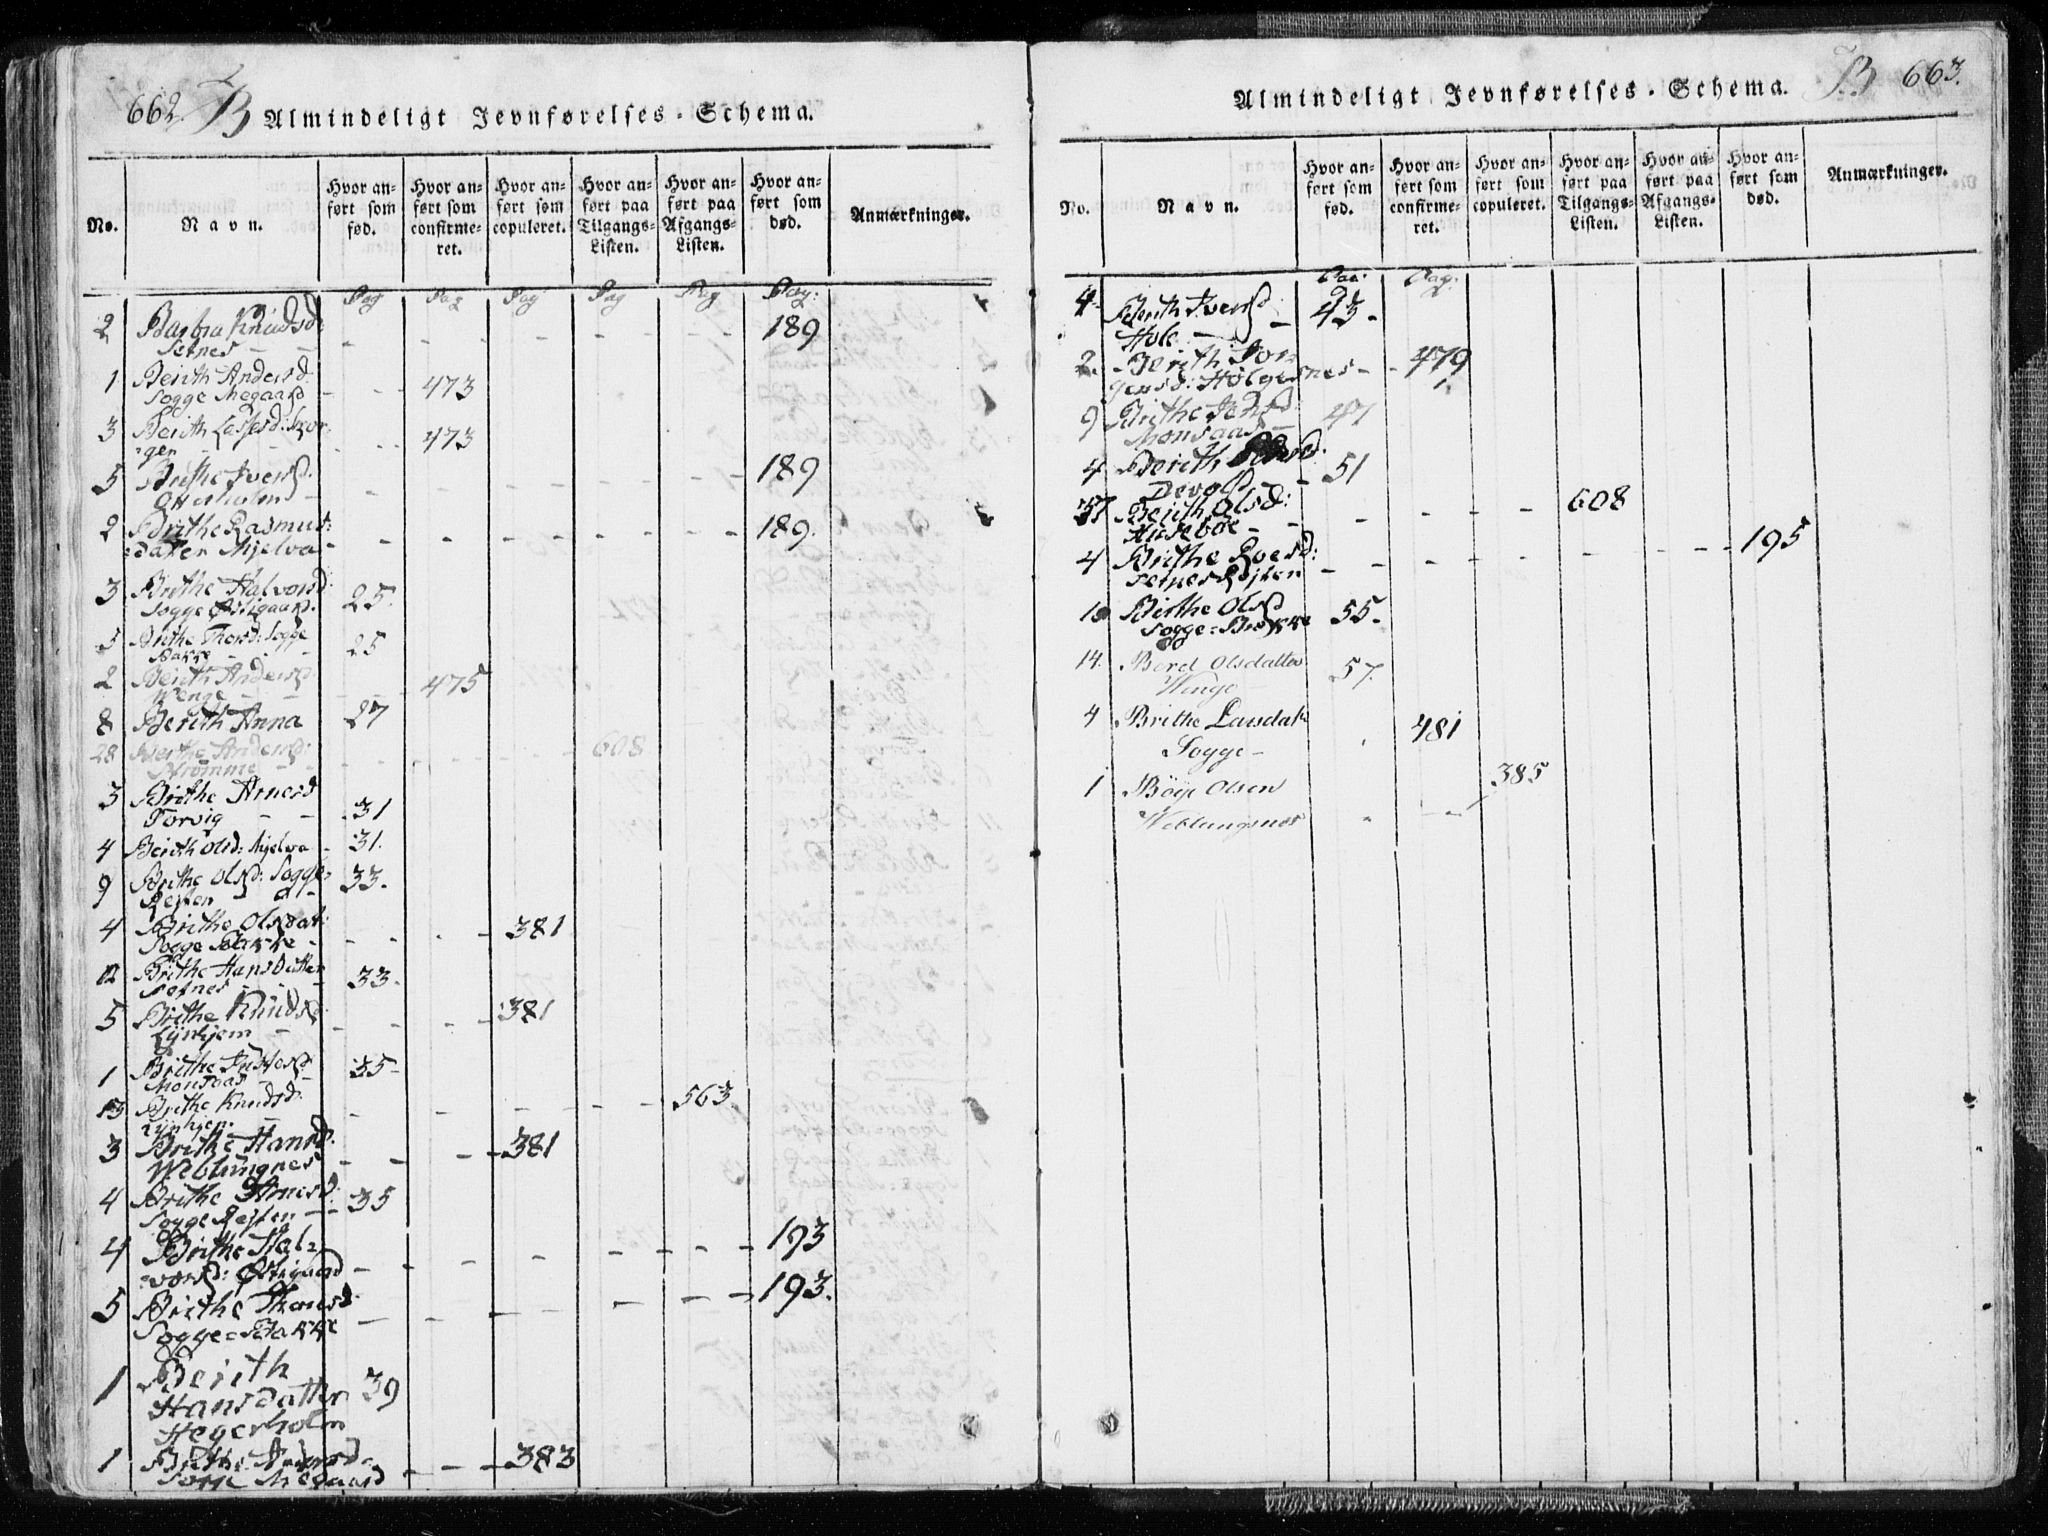 662. B Almindeligt Jevnførelses-Schema.
No. Navn. Hvor anført som fød. Hvor anført som confirmeret. Hvor anført som copuleret. Hvor anført paa Tilgangs-Listen. Hvor anført paa Afgangs-Listen. Hvor anført som død. Anmærkninger.
Pag Pag Pag Pag Pag Pag:
2 Barbra Knudsd: 189
Setnes
1 Berith Andersd:
Sogge Negaard 473
3 Berith Lassesd: Skor-
gen 473
5 Brithe Iversd: 189
Otterholm
2 Brithe Rasmus-
datter Mjelva 189.
3 Brithe Halvorsd:
Sogge Østigaard. 25.
5 Brithe Thorsd: Sogge
Bakke 25
2 Berith Andersd:
Wenge 475
8 Berith Anna 27
28 Berthe Andersd: 608
Strømme
3 Brithe Arnesd
Torvig 31
4 Berith Olsd: Mjelva 31.
9 Brithe Olsd: Sogge-
Rejten 33.
4 Brithe Olsdat:
Sogge Bakke 381
12 Brithe Hansdatter
Setnes 33.
5 Brithe Knudsd: 381
Lynhjem
1 Brithe
Monsaas 35
13 Brithe Knudsd 563
Lynhjem.
3 Brithe Hansd: 381
Weblungnes
4 Brithe Arnesd: 35
Sogge Rejten
4 Brithe Hal- 193
vorsd: Østigaard
5 Brithe Thorsd 193.
Sogge-Bakke
1 Berith
Hansdatter 39
Hegerholm
1 Brithe Andersd- 383
Sogge Negaard
Almindeligt Jevnførelses-Schema. B 663.
No. Navn. Hvor anført som fød. Hvor anført som confirmeret. Hvor anført som copuleret. Hvor anført paa Tilgangs-Listen. Hvor anført paa Afgangs-Listen. Hvor anført som død. Anmærkninger.
Pag: Pag:
4 Berith Iversd 43.
Hole
2. Berith Jør- 479
gensd: Holgesnes
9 Brithe Jensd 47
Monsaas
4 Berith 51
Devold
37 Berith Olsd: 608
Husebøe
4 Brithe Roesd: 195
Setnes Rejten
10 Birthe Olsd 55.
Sogge-Bakke
14. Berel Olsdatter 57.
Wenge
4 Brithe Larsdatr 481
Sogge
1 Böije Olsen 385
Weblungsnes